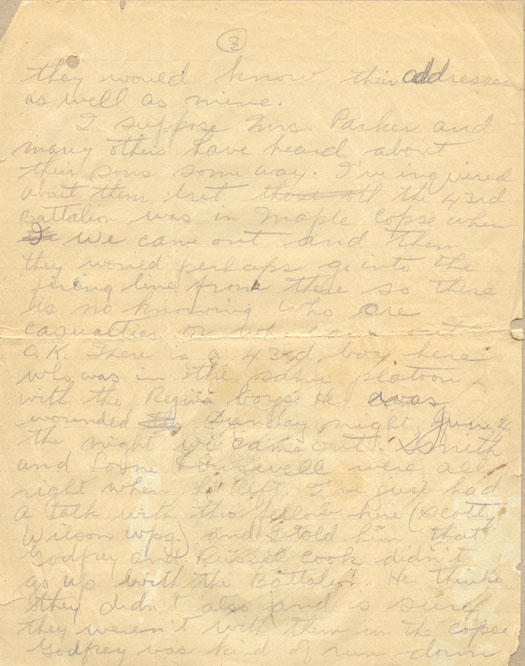 3
they would know their addresses
as well as mine.
I suppose Mrs. Parker and
many others have heard about
their sons some way. I've inquired
about them but the 43rd
Battalion was in Maple Copse when
we came out and then
they would perhaps go into the
firing line from there so there
is no knowing who are
casualties or who came out
O.K. There is a 43rd boy here
who was in the same platoon
with the Regina boys. He was
wounded Sunday night, June 4
the night we came out. Smith
and Lorne were all
right when he left. I've just had
a talk with this fellow here (Scotty
Wilson wpg.) and I told him that
Godfrey and Russel Cook didn't
go up with the Battalion. He thinks
they didn't also and is sure
they weren't with them in the copse
Godfrey was kind of run down